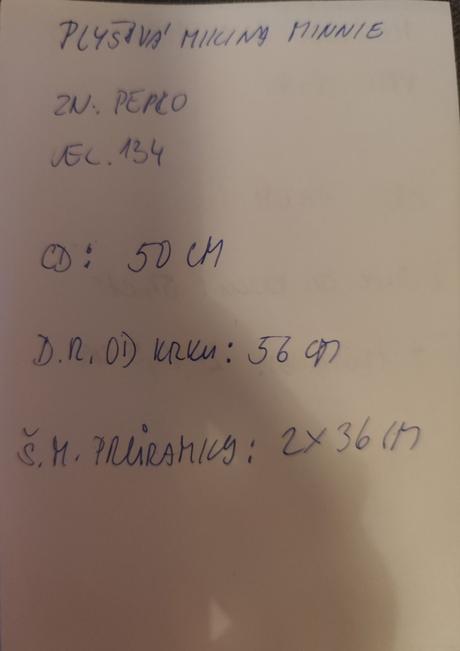 PLYŠOVÁ MIKINA MINNIE
ZN: PEPCO
VEL. 134
CD: 50 CM
D.R. OD KRKU: 56 CM
Š.M. PRŮRAMKY: 2X36 CM